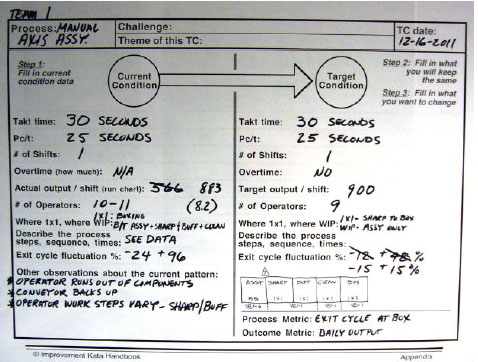 TEAM 1
Process: MANUAL AXIS ASSY.
Challenge:
Theme of this TC:
TC date: 12-16-2011
Step 1:
Fill in current
condition data
Current
Condition
Target
Condition
Step 2: Fill in what
you will keep
the same
Step 3: Fill in what
you want to change
Takt time: 30 SECONDS
Pc/t: 25 SECONDS
# of Shifts: 1
Overtime (how much): N/A
Actual output / shift (run chart): 566 883
# of Operators: 10-11 (8.2)
Where 1x1, where WIP: 1X1: BOXING
B/T ASSY + SHARP & BUFF + CLEAN
Describe the process
steps, sequence, times: SEE DATA
Exit cycle fluctuation %: -24 +96
Other observations about the current pattern:
* OPERATOR RUNS OUT OF COMPONENTS
* CONVEYOR BACKS UP
* OPERATOR WORK STEPS VARY - SHARP/BUFF
Takt time: 30 SECONDS
Pc/t: 25 SECONDS
# of Shifts: 1
Overtime: NO
Target output / shift: 900
# of Operators: 9
Where 1x1, where WIP: 1X1- SHARP TO BOX
WIP- ASSY ONLY
Describe the process
steps, sequence, times:
Exit cycle fluctuation %:
-15 +15%
ASSY SHARP BUFF CLEAN BOX
1X1 1X1 1X1 1X1
Process Metric: EXIT CYCLE AT BOX
Outcome Metric: DAILY OUTPUT
© Improvement Kata Handbook
Appendix